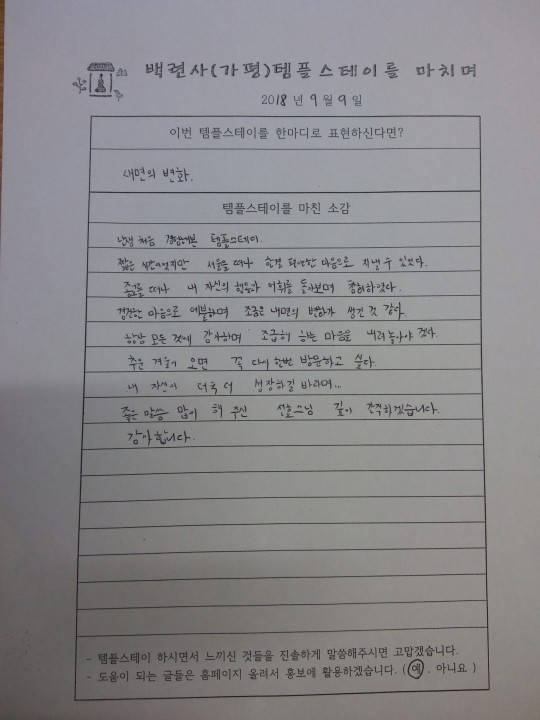 백련사(가평)템플스테이를 마치며
2018년 9월 9일
이번 템플스테이를 한마디로 표현하신다면?
내면의 변화.
템플스테이를 마친 소감
난생 처음 경험해본 템플스테이.
짧은 시간이었지만 서울을 떠나 한결 편안한 마음으로 지낼 수 있었다.
종교를 떠나 내 자신의 행동과 어휘를 돌아보며 참회하였다.
경건한 마음으로 예불하며 조금은 내면의 변화가 생긴 것 같다.
항상 모든 것에 감사하며 조급해 하는 마음을 내려놓아야 겠다.
추운 겨울이 오면 꼭 다시 한번 방문하고 싶다.
내 자신이 더욱 더 성장하길 바라며...
좋은 말씀 많이 해 주신 스님 깊이 간직하겠습니다.
감사합니다.
- 템플스테이 하시면서 느끼신 것들을 진솔하게 말씀해주시면 고맙겠습니다.
- 도움이 되는 글들은 홈페이지 올려서 홍보에 활용하겠습니다. (예, 아니요)